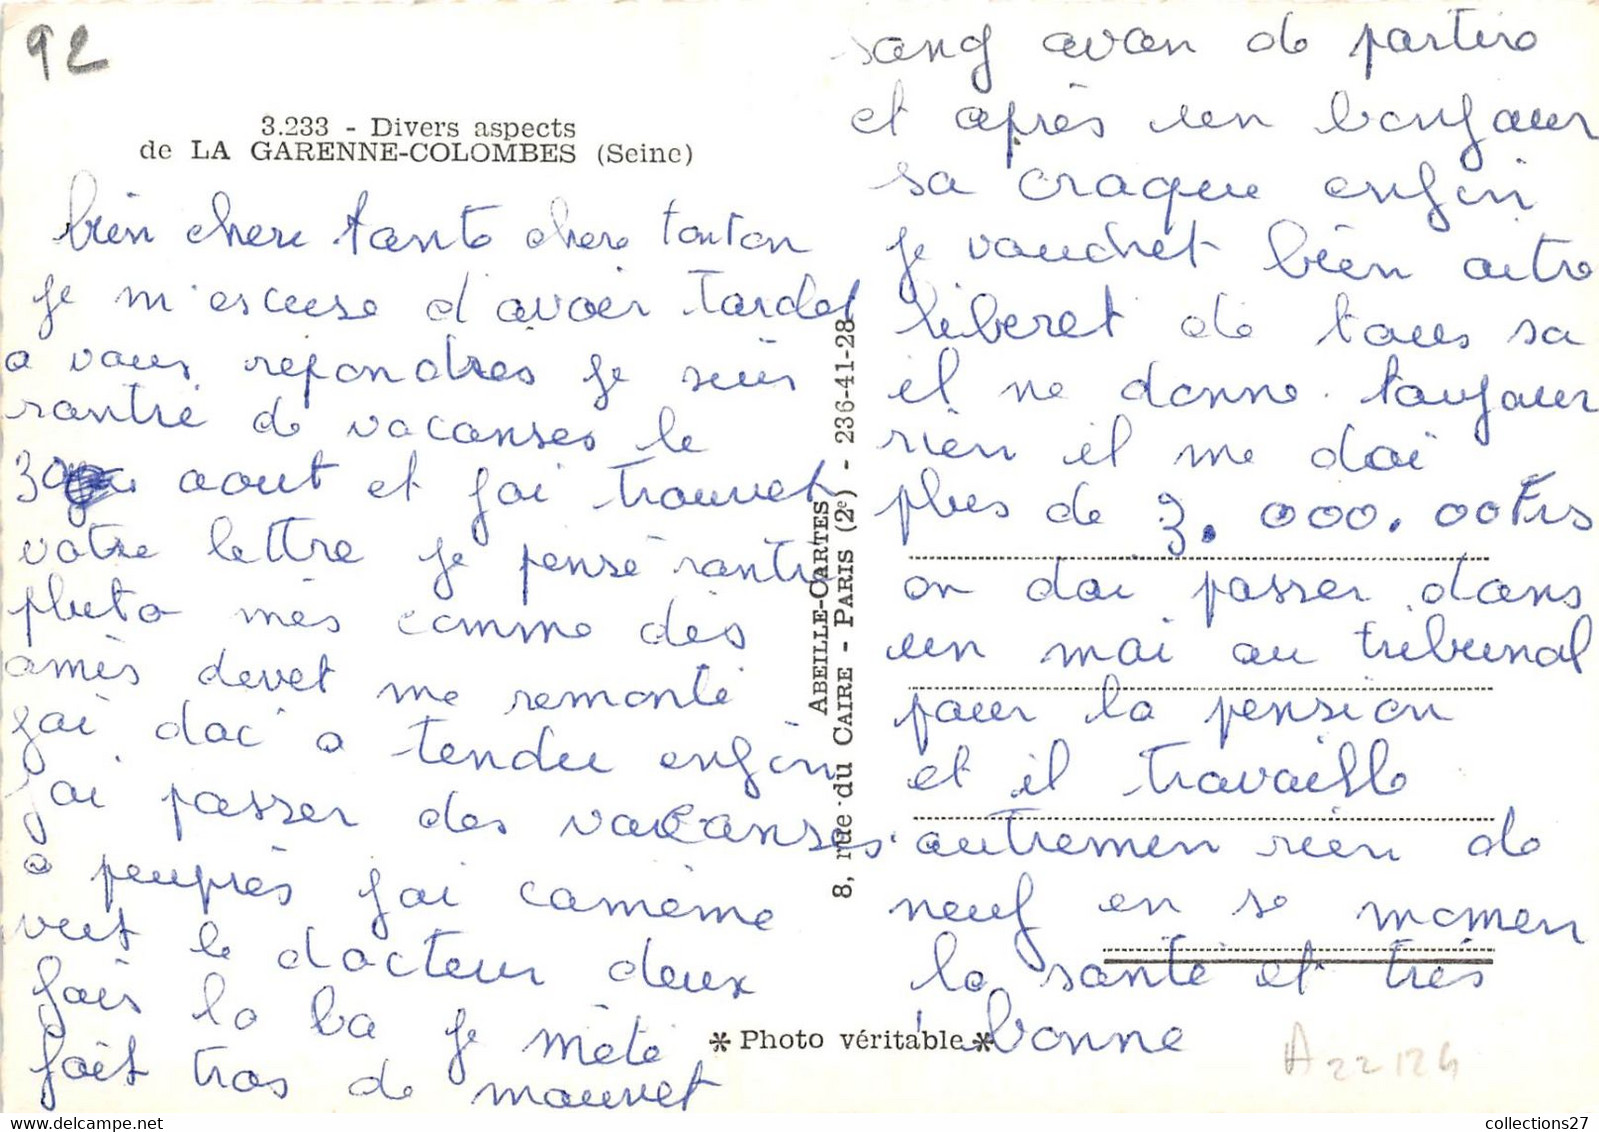 92
3.233 - Divers aspects
de LA GARENNE-COLOMBES (Seine)
bien chere tante chere tonton
je m'escuse d'avoir tardet
a vous répondres je suis
rantré de vacanses le
30 aout et jai trouvet
votre lettre je pensé rantré
pluto mès comme dès
amès devet me remonté
jai dai a tendu enfin
jai passer des vacanses
a peuprès jai camème
veut le docteur deux
fais la ba je mèté
fait tros de mauvet
sang avan de partire
et après un boujour
sa craque enfin
je vouchet bien aitre
liberet de tous sa
il ne donne toujour
rien il me doi
plus de 3.000.00Frs
on doi passer dans
un moi au tribunal
pour la pension
et il travaille
autremen rien de
neuf en se momen
la santé et très
bonne
ABEILLE-CARTES
8, rue du CAIRE - PARIS (2e) - 236-41-28
* Photo véritable *
A 22124
collections27